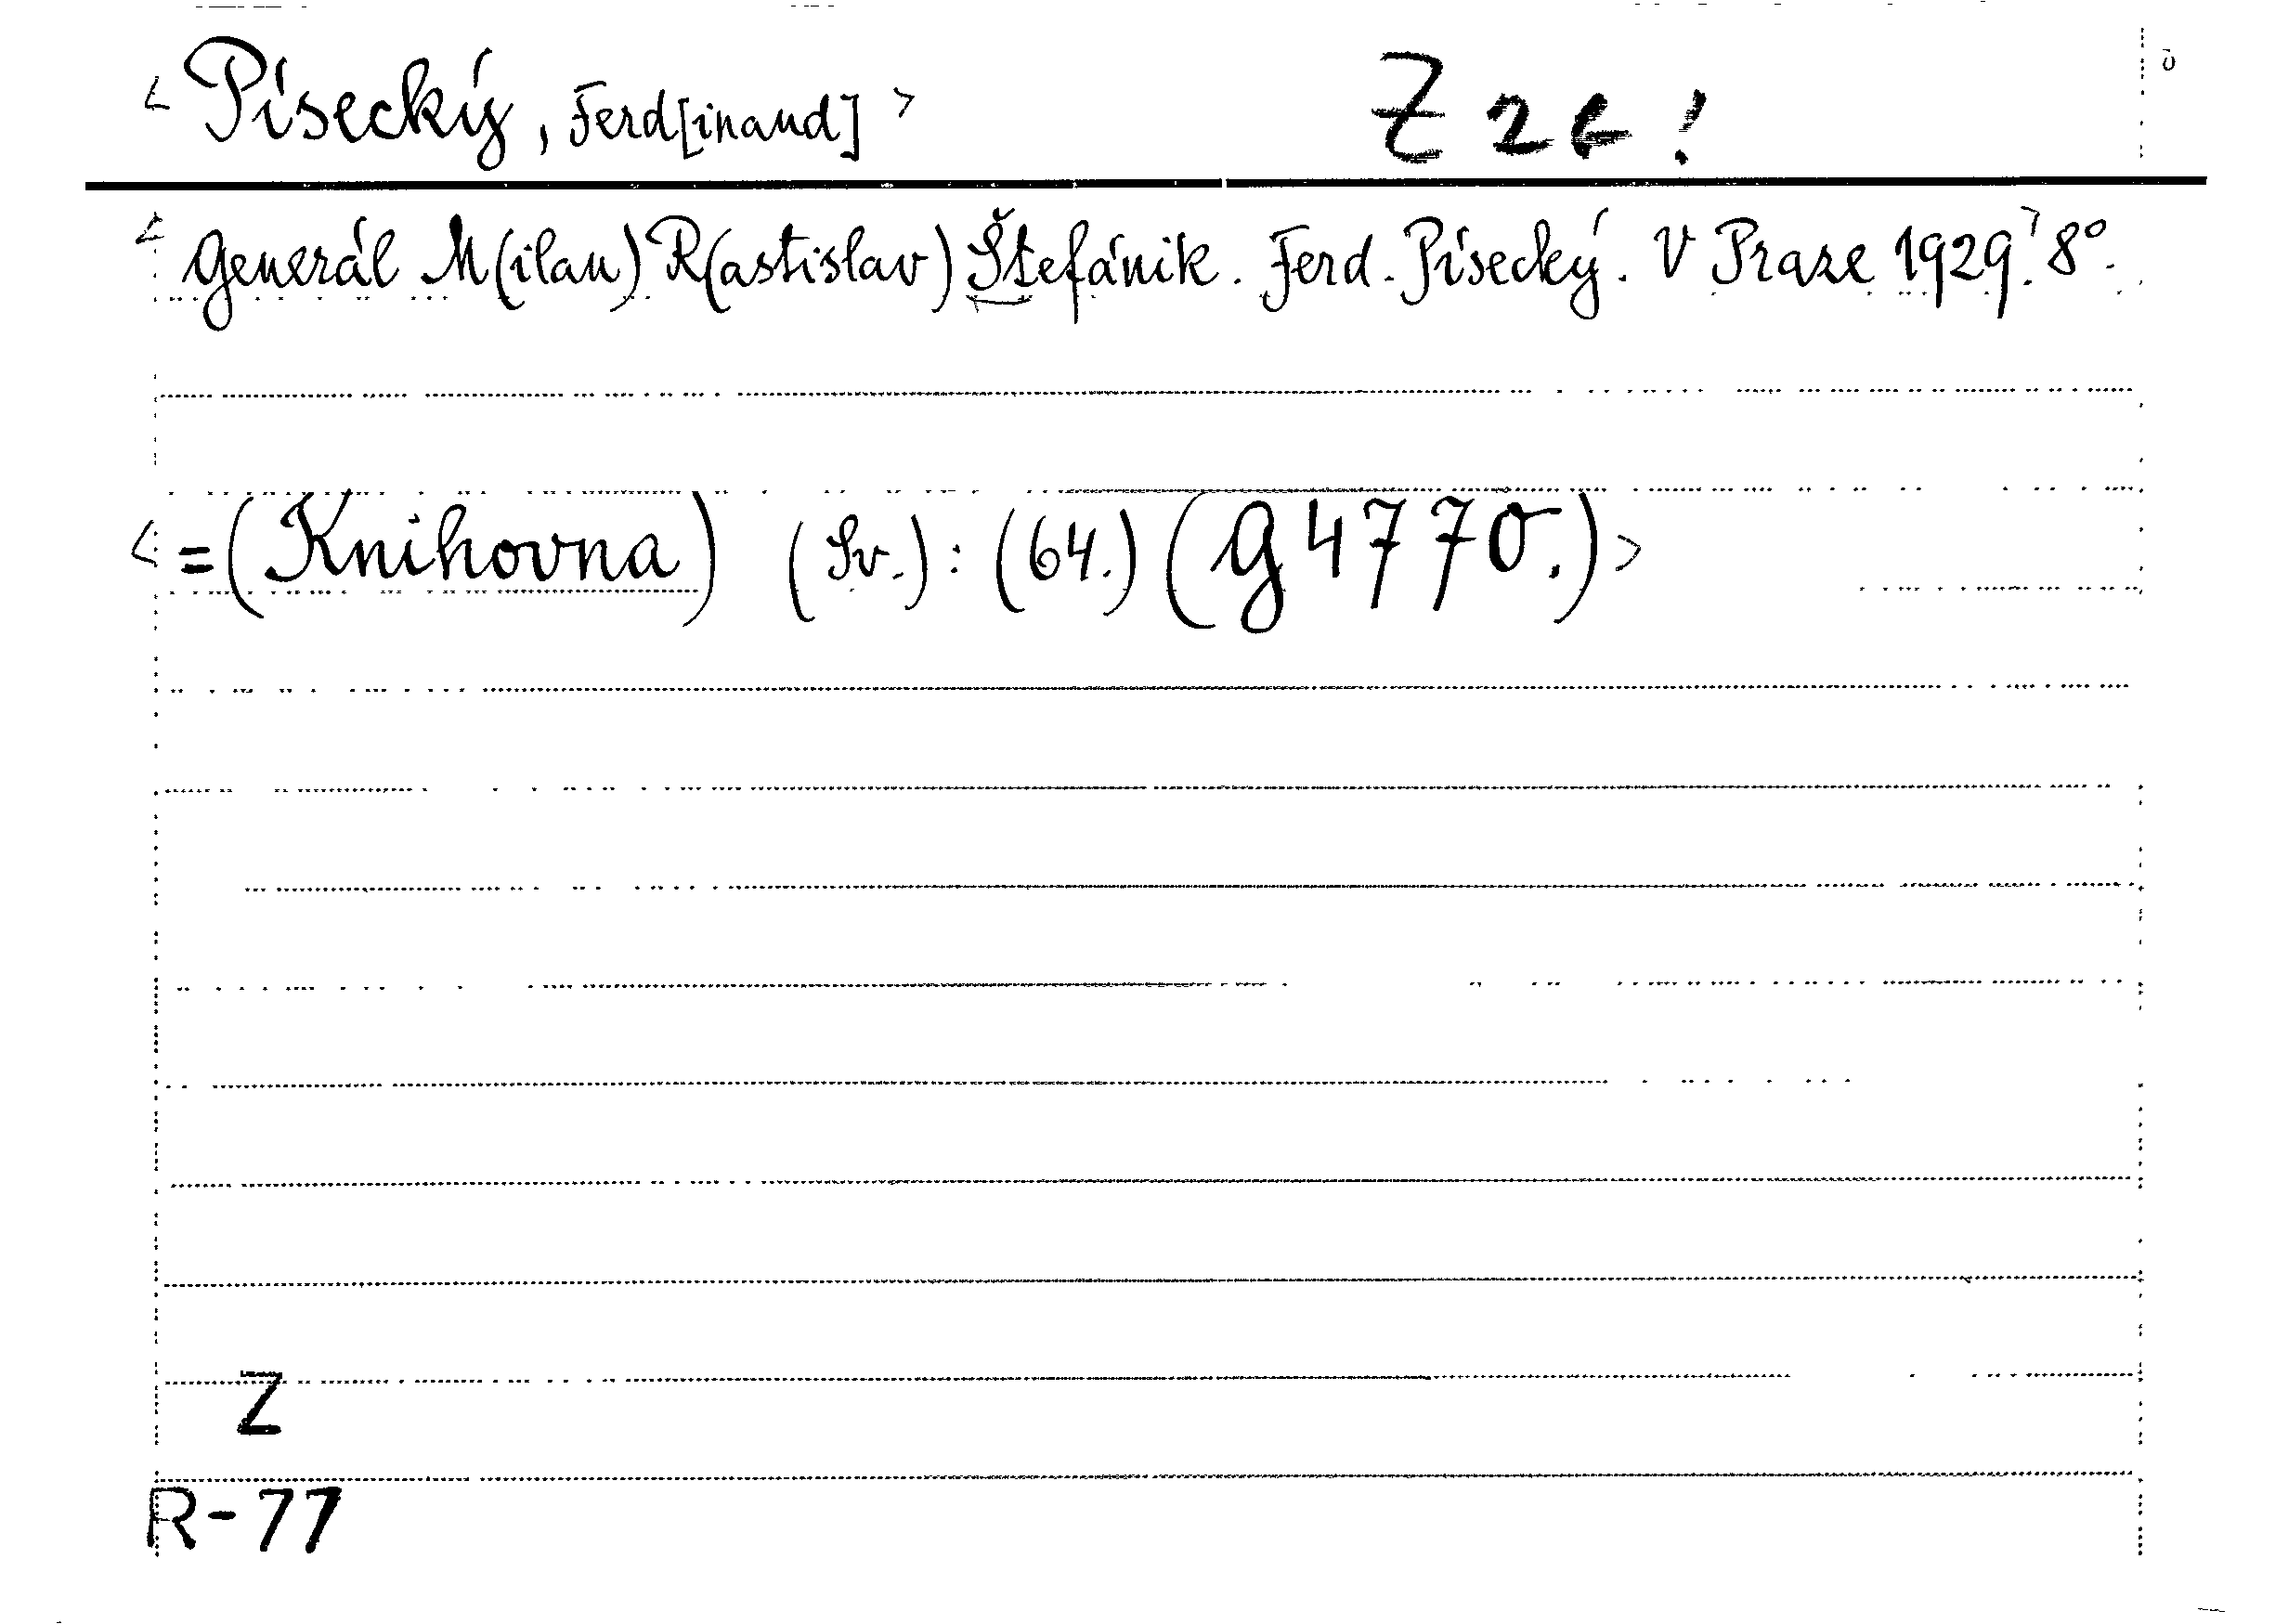 < Písecký, Ferd[inand] > Z
< Generál M(ilan) R(astislav) Štefánik. Ferd. Písecký. V Praze 1929.> 8°.
< = (Knihovna) (Sv.): (64.) (G 4770.) >
Z
R-77